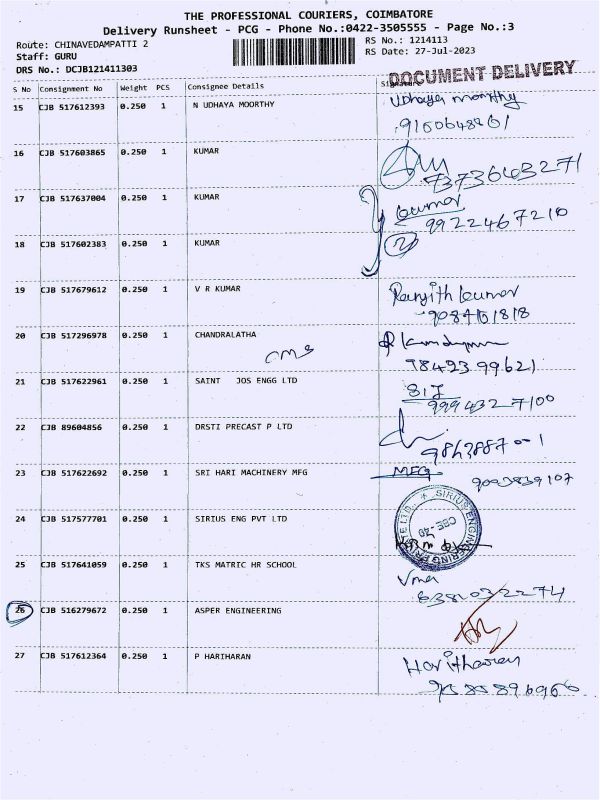 THE PROFESSIONAL COURIERS, COIMBATORE
Delivery Runsheet - PCG - Phone No.:0422-3505555 - Page No.:3
Route: CHINAVEDAMPATTI 2
RS No.: 1214113
Staff: GURU
RS Date: 27-Jul-2023
DRS No.: DCJB121411303
DOCUMENT DELIVERY
S No Consignment No Weight PCS Consignee Details
15 CJB 517612393 0.250 1 N UDHAYA MOORTHY Udhaya moorthy
16 CJB 517603865 0.250 1 KUMAR
17 CJB 517637004 0.250 1 KUMAR kumar
9922467210
18 CJB 517602383 0.250 1 KUMAR
19 CJB 517679612 0.250 1 V R KUMAR Ranjith kumar
20 CJB 517296978 0.250 1 CHANDRALATHA
7842399621
21 CJB 517622961 0.250 1 SAINT JOS ENGG LTD SIJ
9994327100
22 CJB 89604856 0.250 1 DRSTI PRECAST P LTD
23 CJB 517622692 0.250 1 SRI HARI MACHINERY MFG MFG
9093839107
24 CJB 517577701 0.250 1 SIRIUS ENG PVT LTD
SIRIUS ENGINEERING PRIVATE LTD. CBE-49
25 CJB 517641059 0.250 1 TKS MATRIC HR SCHOOL Uma
6381032274
26 CJB 516279672 0.250 1 ASPER ENGINEERING
27 CJB 517612364 0.250 1 P HARITHARAN Haritharan